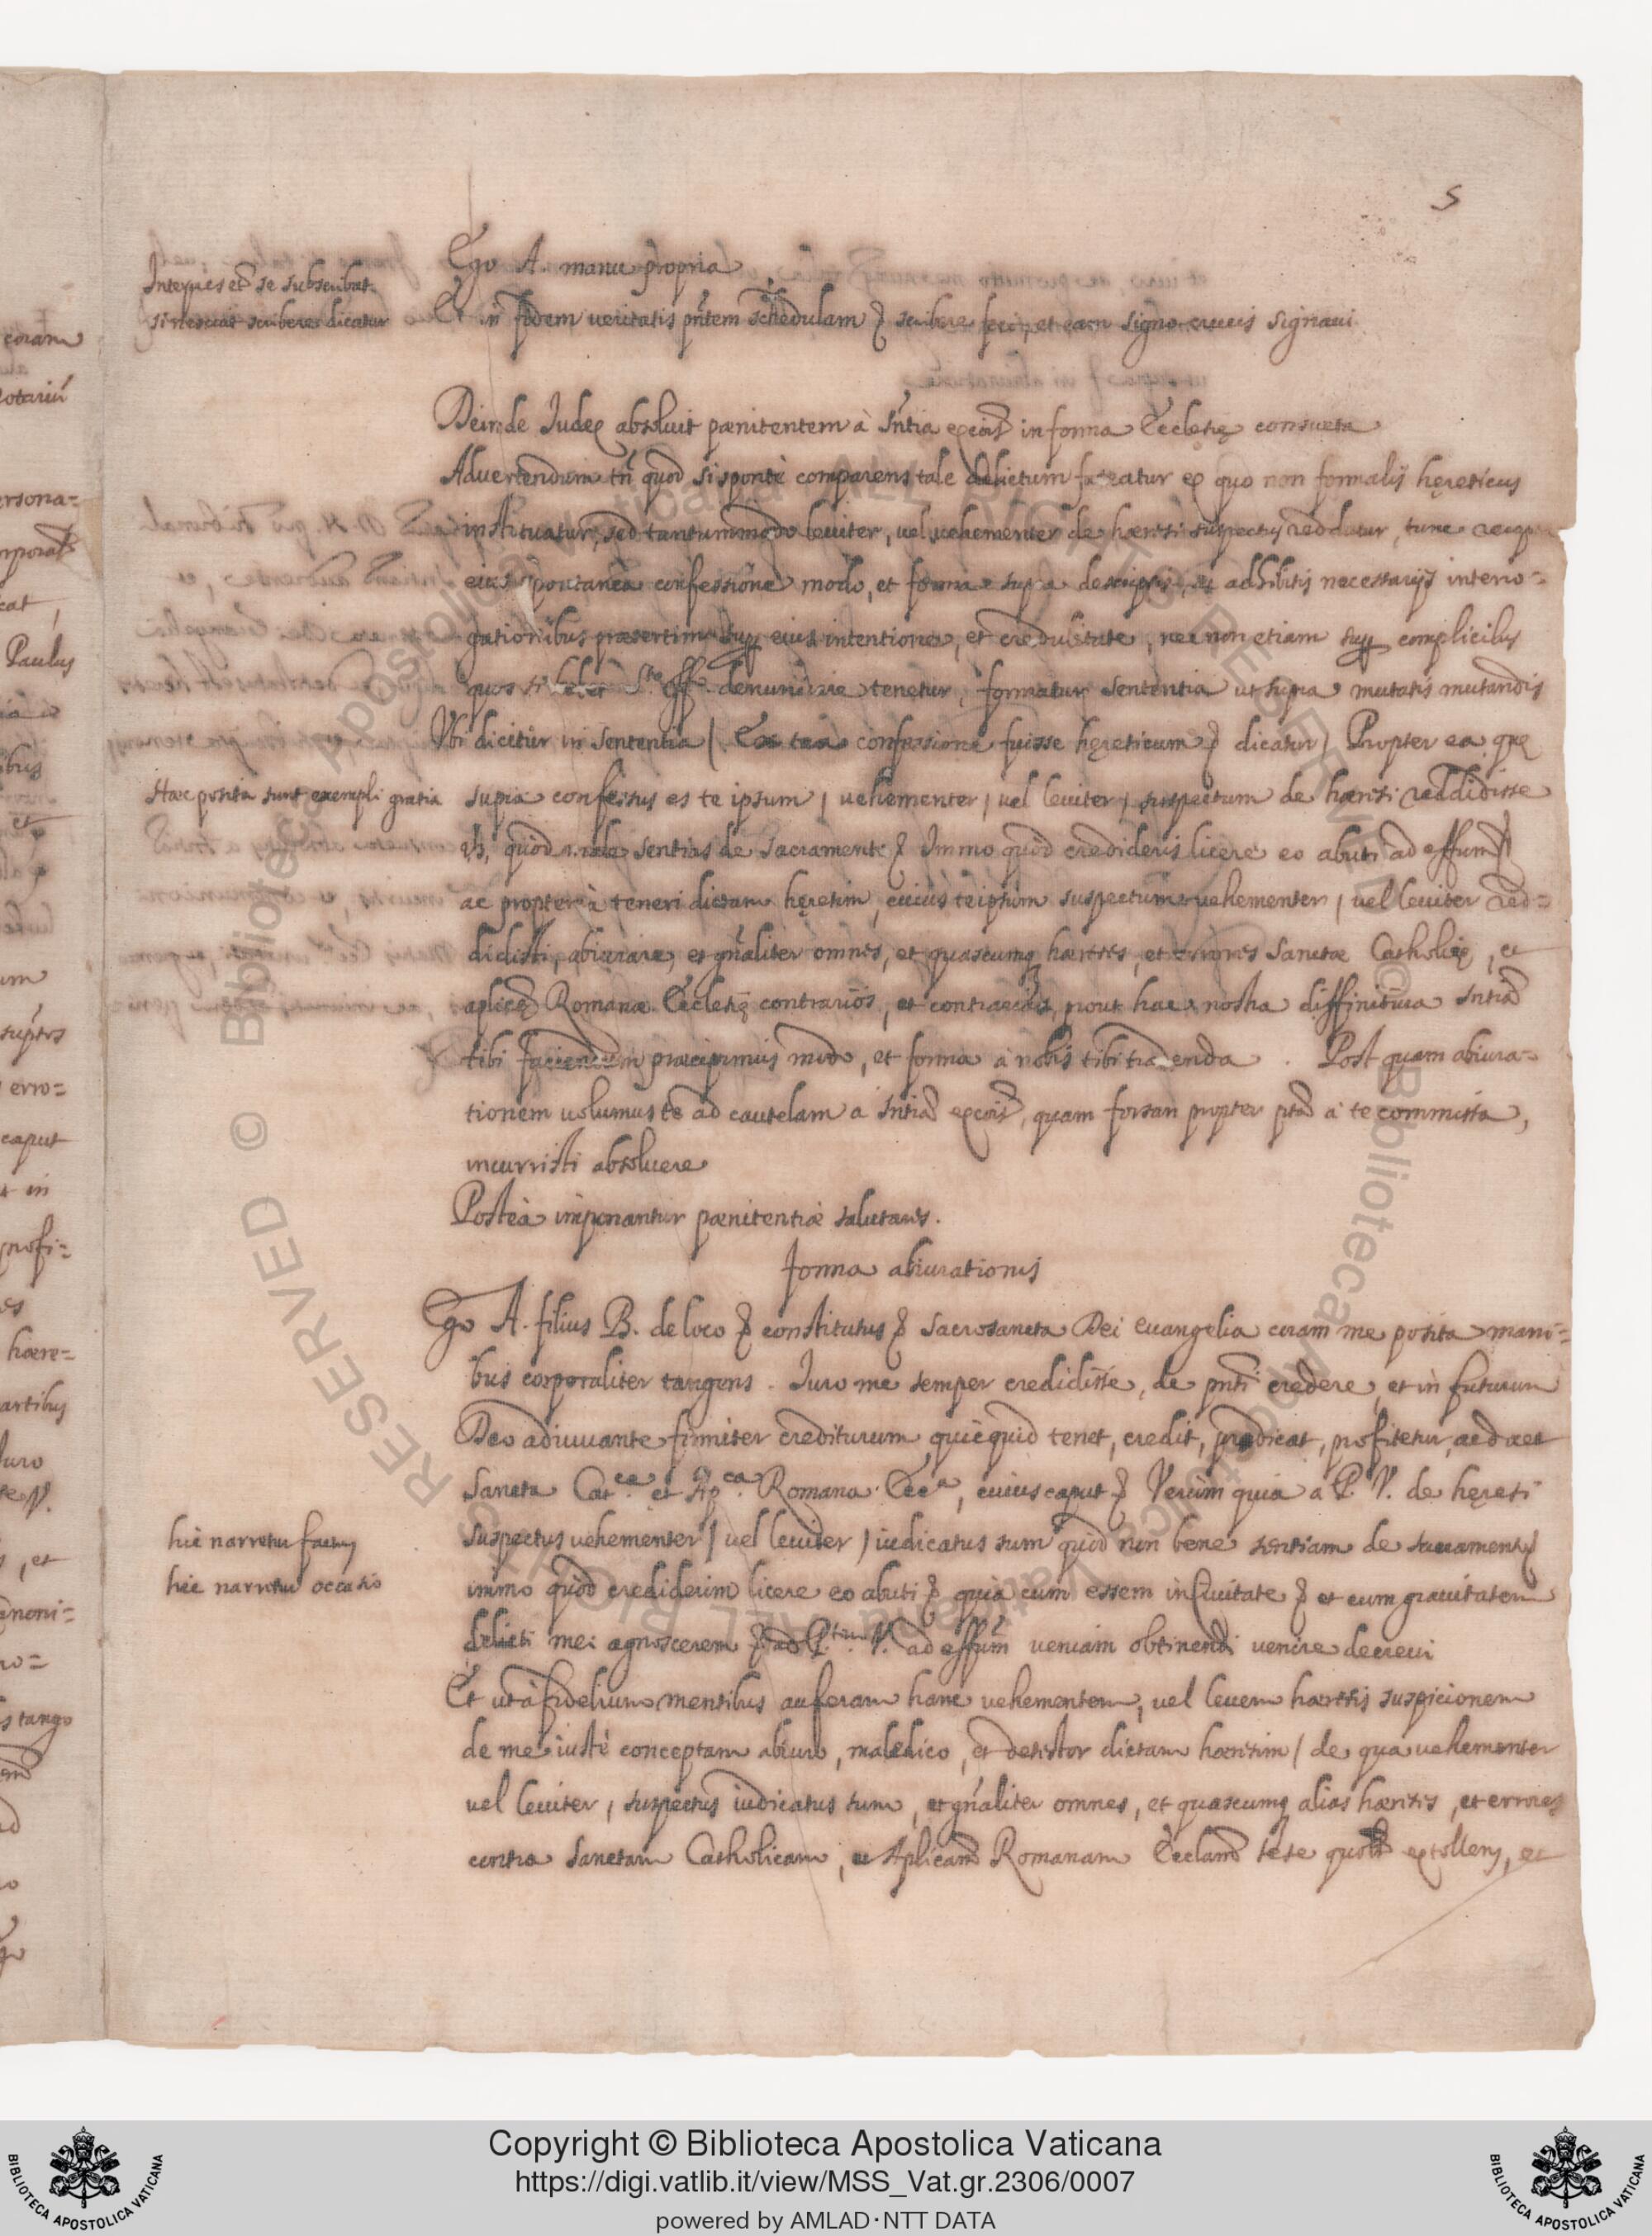 5
Ego A. manu propria
Interpres et se subscribat
si nesciat scribere dicatur
Et in fidem veritatis pñtem schedulam & scribere feci, et eam signo crucis signavi
Deinde Iudex absoluit pœnitentem à sñtia excõis in forma Ecclesię consueta
Advertendum tñ quod si sponte comparens tale delictum fateatur ex quo non formalis hęreticus
instituatur, sed tantummodo leviter, vel vehementer de hæresi suspectus reddatur, tunc
eius spontanea confessione modo, et forma supra descriptis, et adhibitis necessarijs interro=
gationibus præsertim sup eius intentione, et credulitate, nec non etiam sup complicibus
quos Sto Offo denunciare tenetur, formatur sententia ut supra mutatis mutandis
Ubi dicitur in sententia / Ex tua confessione fuisse hęreticum & dicatur / Propter ea quę
Hæc posita sunt exempli gratia
supra confessus es te ipsum / vehementer / vel leviter / suspectum de hæresi reddidisse
quod male sentias de Sacramento & Immo quod credideris licere eo abuti ad effum &
ac propterea teneri dictam hęresim, cuius teipsum suspectum vehementer / vel leviter red=
didisti, abiurare, et gñaliter omnes, et quascumq hæreses, et errores Sanctæ Catholicę, et
aplicę Romanæ Ecclesię contrarios, et contrarias, prout hac nostra diffinitiva sntia
tibi faciendum præcipimus modo, et forma a nobis tibi tradenda. Post quam abiura=
tionem volumus te ad cautelam a sntia excõis, quam forsan propter pta a te commissa,
incurristi absoluere
Postea imponantur pœnitentiæ salutares.
forma abiurationis
Ego A. filius B. de loco & constitutus & Sacrosancta Dei evangelia coram me posita mani=
bus corporaliter tangens. Iuro me semper credidisse, de pnti credere, et in futurum
Deo adiuvante firmiter crediturum quicquid tenet, credit, prædicat, profitetur, ac docet
Sancta Catca. et Apca. Romana Ecca, cuius caput & Verum quia a P. V. de hęresi
hic narretur factum
suspectus vehementer / vel leviter / iudicatus sum quod non bene sentiam de sacramentis
hic narretur occasio
immo quod crediderim licere eo abuti & quia cum essem in Civitate & et cum gravitatem
delicti mei agnoscerem & ad P.tem V. ad effum veniam obtinendi venire decrevi
Et ut à fidelium mentibus auferam hanc vehementem, vel levem hæresis suspicionem
de me iustè conceptam abiuro, maledico, et detestor dictam hæresim / de qua vehementer
vel leviter, suspectus iudicatus sum, et gñaliter omnes, et quascumq alias hæresis, et errores
contra Sanctam Catholicam, et Aplicam Romanam Ecclam sese extollens, et
Copyright © Biblioteca Apostolica Vaticana
https://digi.vatlib.it/view/MSS_Vat.gr.2306/0007
powered by AMLAD·NTT DATA
BIBLIOTECA APOSTOLICA VATICANA
BIBLIOTECA APOSTOLICA VATICANA